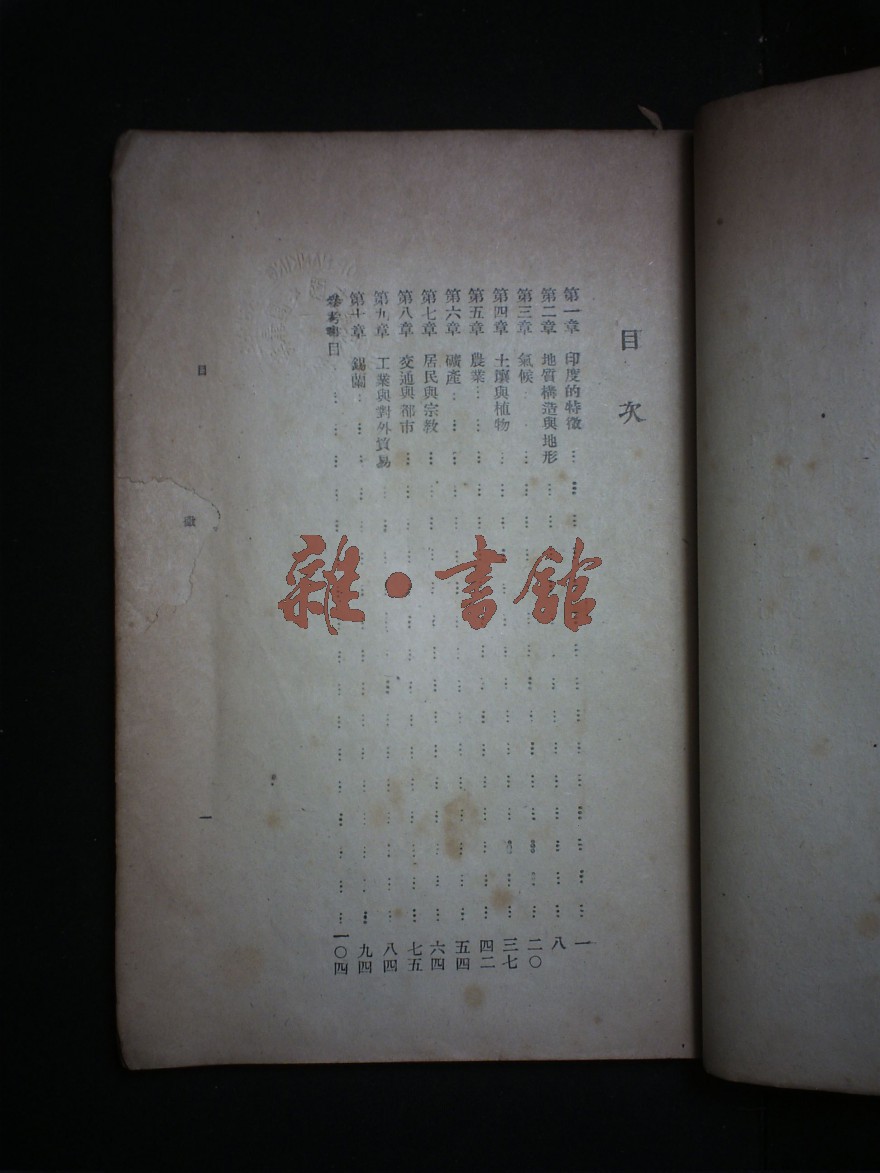 目次
第一章 印度的特徵 一
第二章 地質構造與地形 八
第三章 氣候 二〇
第四章 土壤與植物 三七
第五章 農業 四二
第六章 礦產 五四
第七章 居民與宗教 六四
第八章 交通與都市 七五
第九章 工業與對外貿易 八四
第十章 錫蘭 九四
參考書目 一〇四
目
一
雜·書館